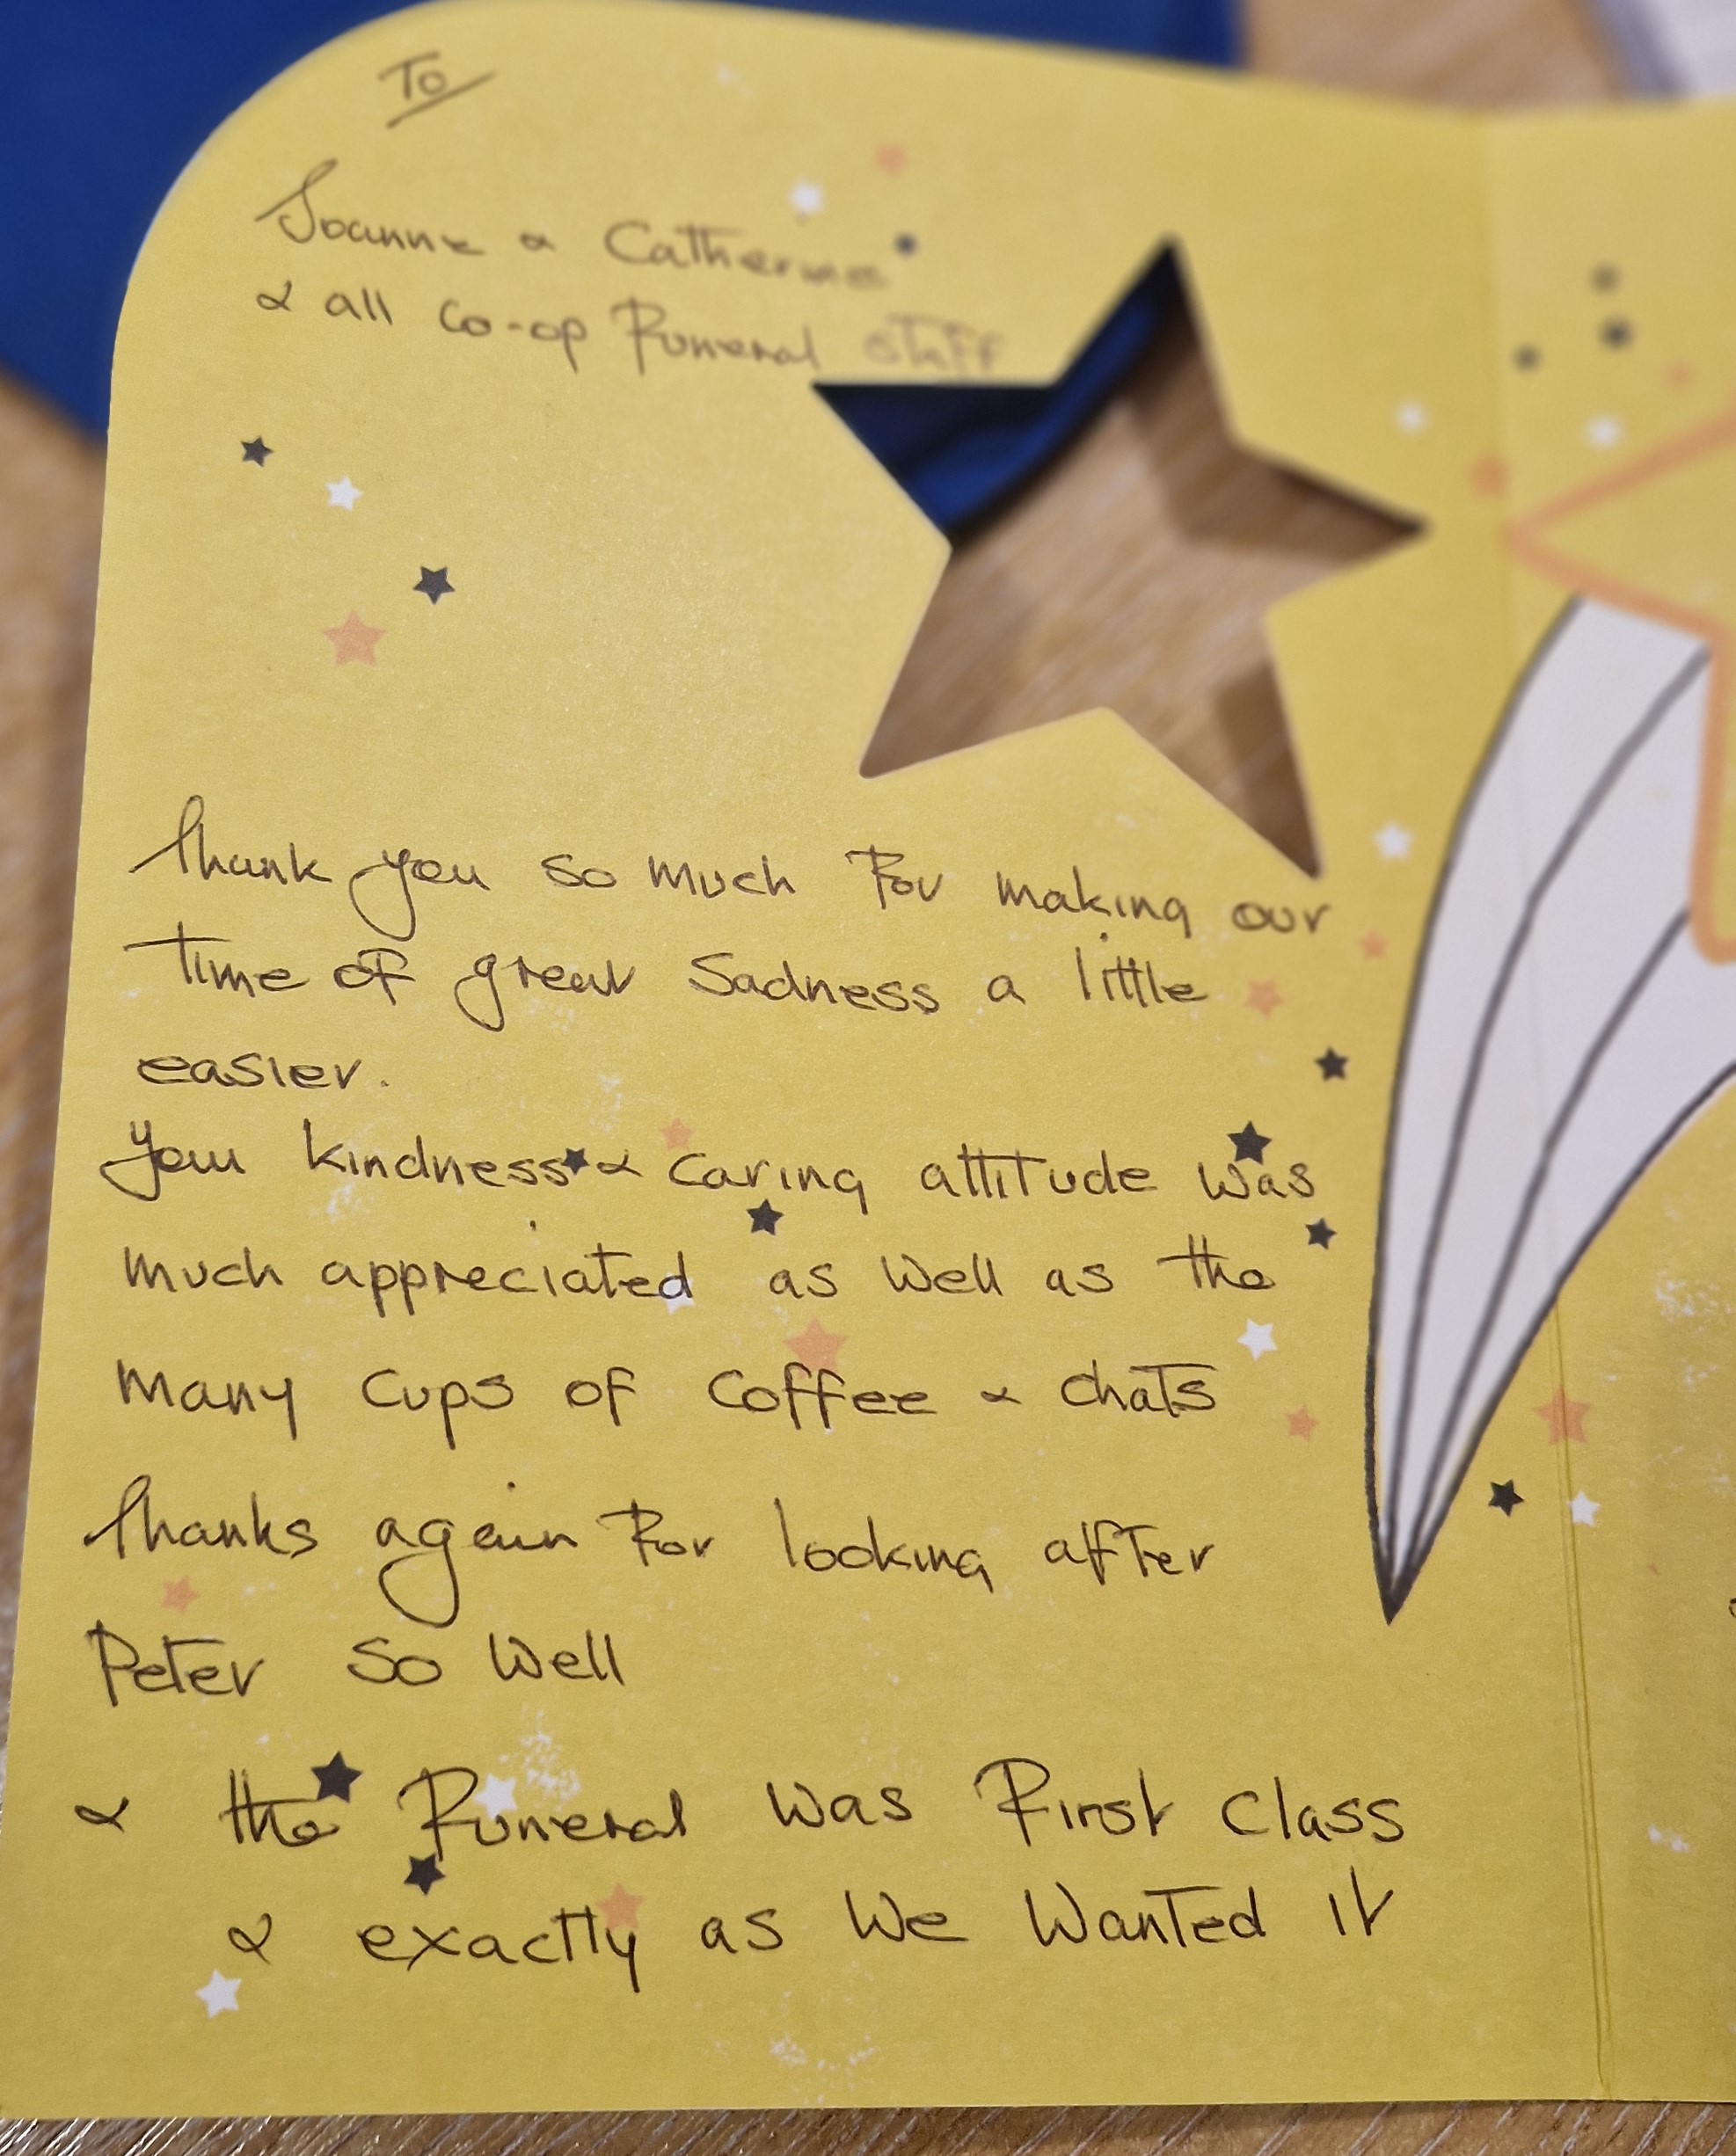 To
Joanne & Catherine
& all Co-op Funeral staff
Thank you so much For making our
Time of great Sadness a little
easier.
Your kindness & caring attitude was
much appreciated as well as the
many cups of coffee & chats
Thanks again For looking after
Peter so well
& the Funeral was First class
& exactly as we wanted it